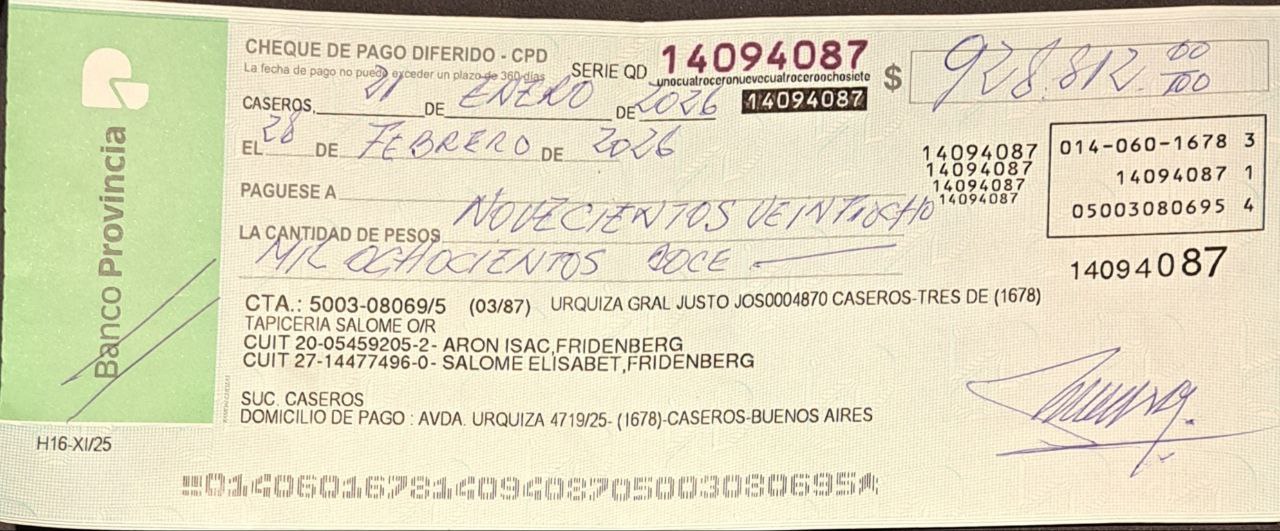 Banco Provincia
CHEQUE DE PAGO DIFERIDO - CPD
La fecha de pago no puede exceder un plazo de 360 días
SERIE QD 14094087
unocuatroceronuevecuatroceroochosiete
14094087
$ 928.812.00/100
CASEROS, 21 DE ENERO DE 2026
EL 28 DE FEBRERO DE 2026
14094087
14094087
14094087
14094087
014-060-1678 3
14094087 1
05003080695 4
14094087
PAGUESE A
LA CANTIDAD DE PESOS NOVECIENTOS VEINTIOCHO
MIL OCHOCIENTOS DOCE
CTA.: 5003-08069/5 (03/87) URQUIZA GRAL JUSTO JOS0004870 CASEROS-TRES DE (1678)
TAPICERIA SALOME O/R
CUIT 20-05459205-2- ARON ISAC,FRIDENBERG
CUIT 27-14477496-0- SALOME ELISABET,FRIDENBERG
SUC. CASEROS
DOMICILIO DE PAGO : AVDA. URQUIZA 4719/25- (1678)-CASEROS-BUENOS AIRES
H16-XI/25
01406016781409408705003080695